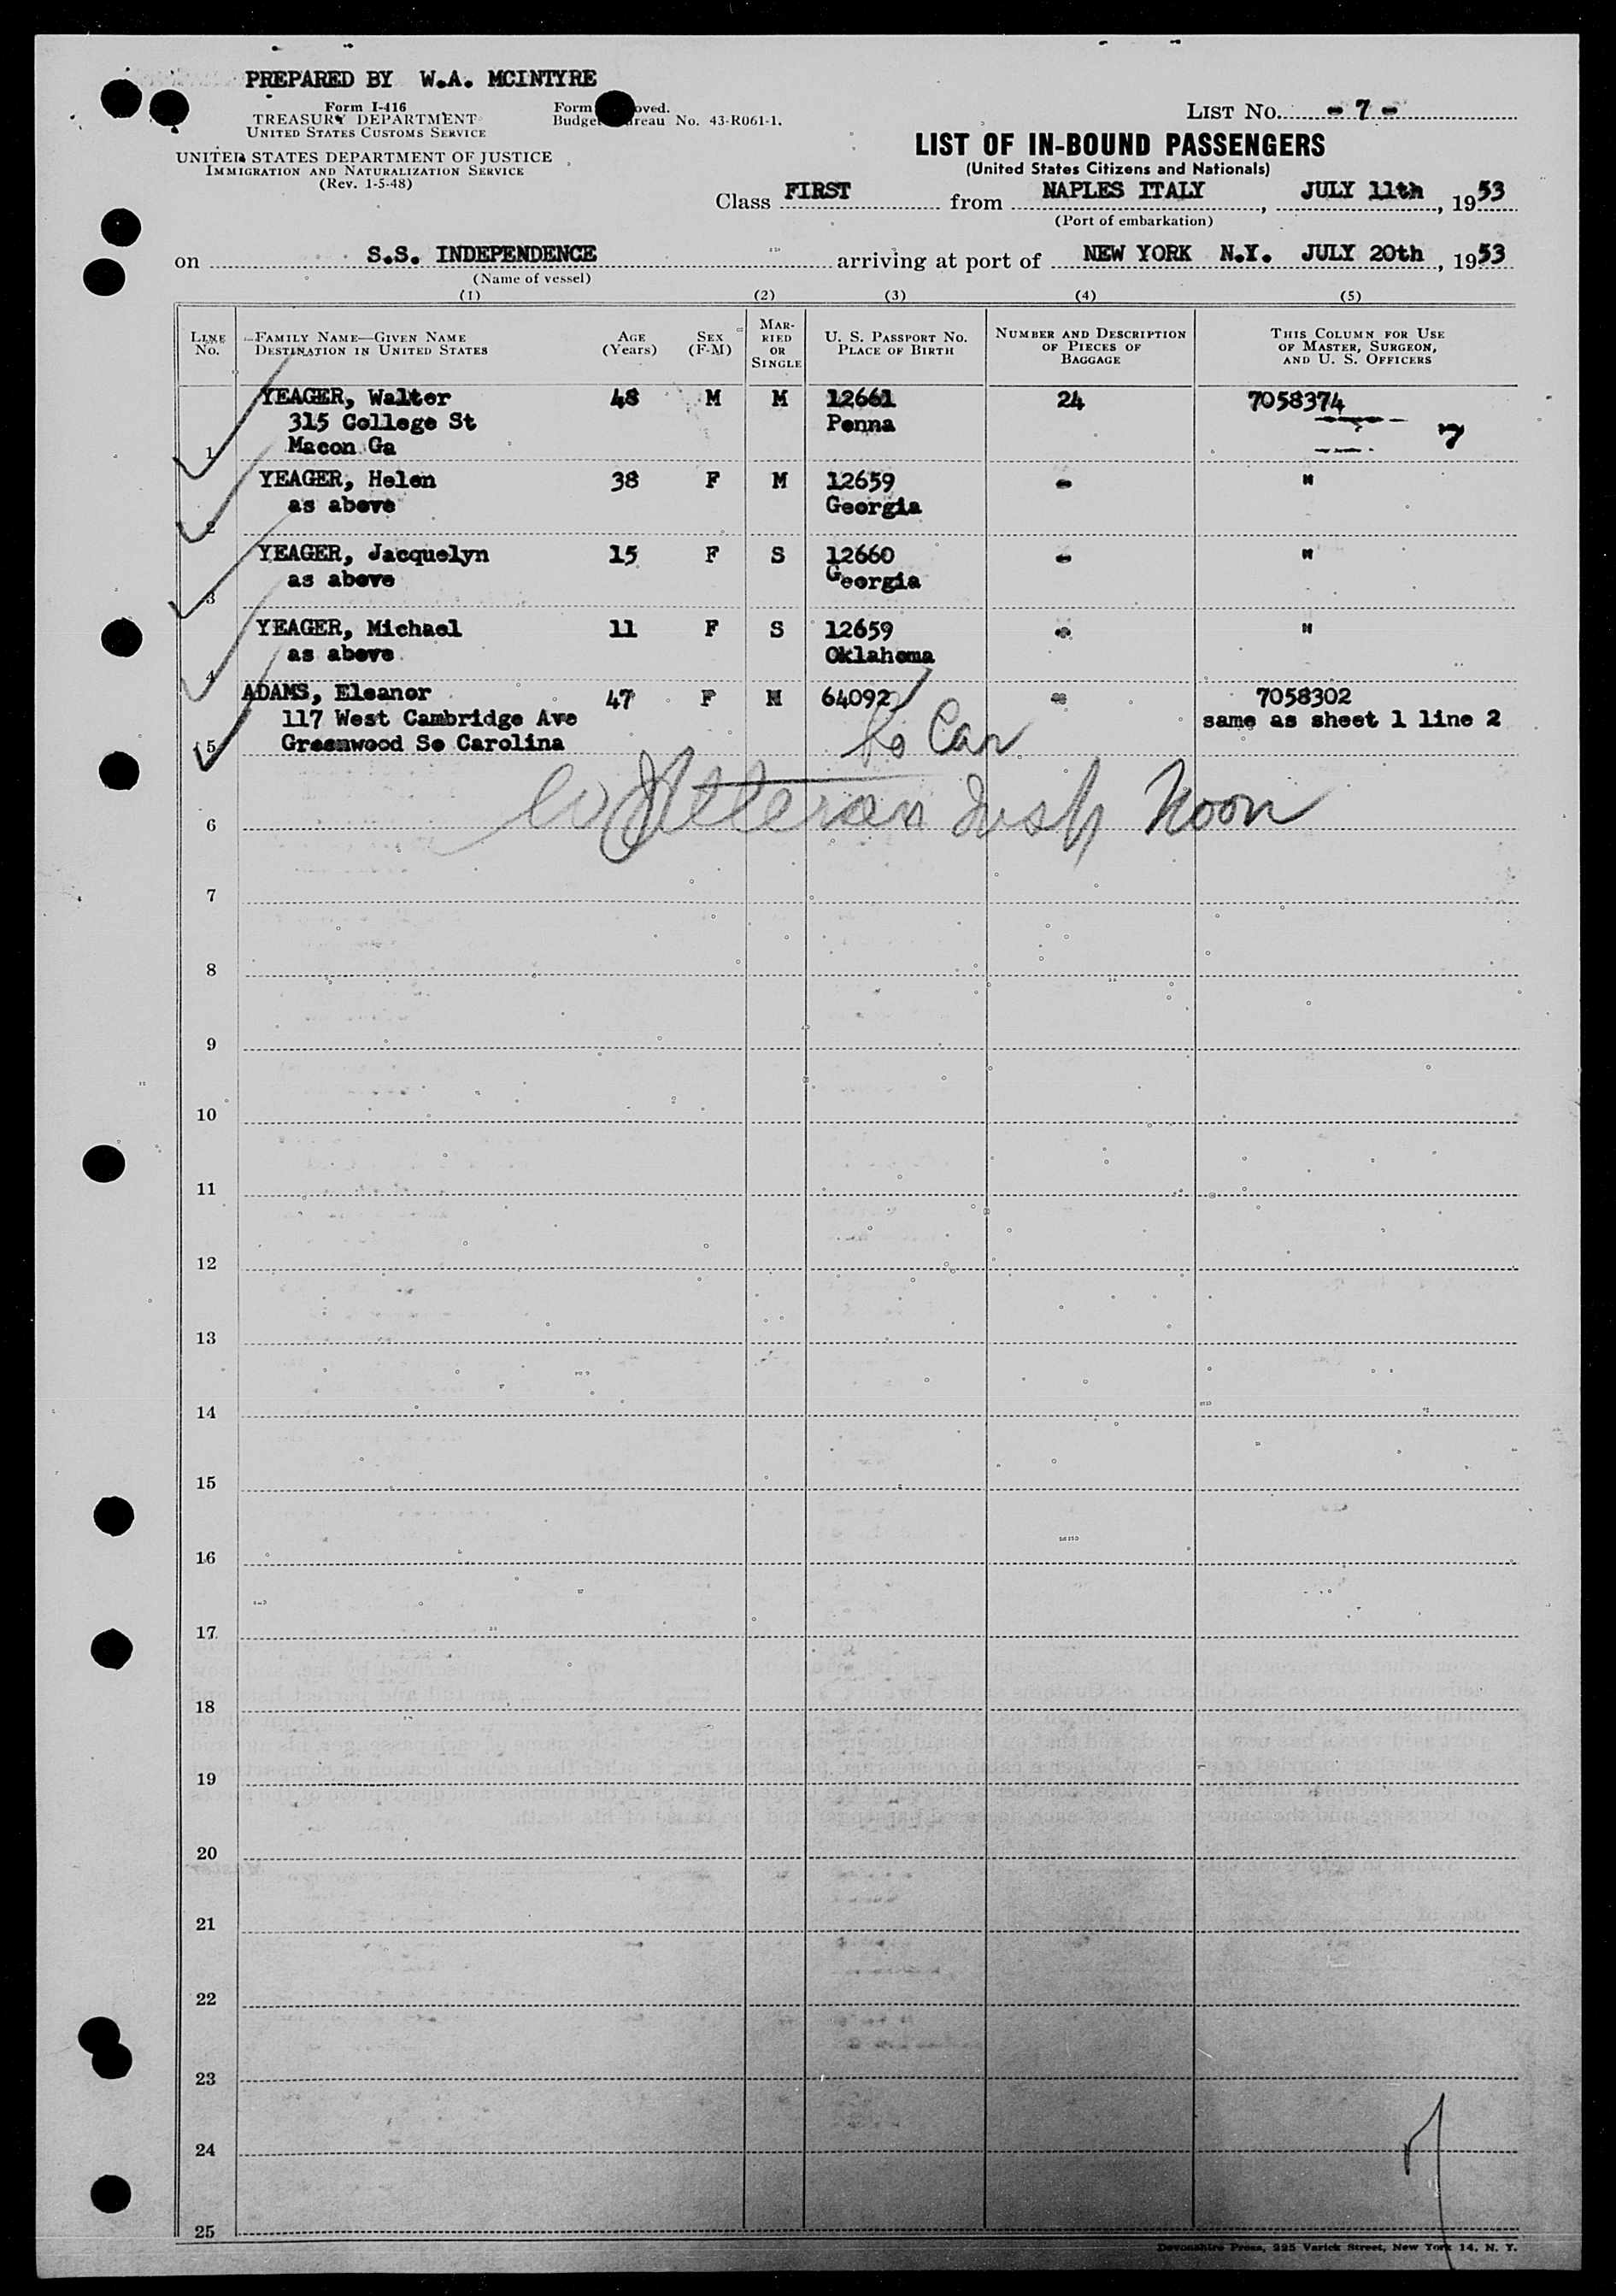 PREPARED BY W.A. MCINTYRE
Form I-416
TREASURY DEPARTMENT
UNITED STATES CUSTOMS SERVICE
Form oved.
Budget reau No. 43-R061-1.
LIST NO. - 7 -
UNITED STATES DEPARTMENT OF JUSTICE
IMMIGRATION AND NATURALIZATION SERVICE
(Rev. 1-5-48)
LIST OF IN-BOUND PASSENGERS
(United States Citizens and Nationals)
Class FIRST from NAPLES ITALY, JULY 11th, 1953
(Port of embarkation)
on S.S. INDEPENDENCE arriving at port of NEW YORK N.Y. JULY 20th, 1953
(Name of vessel)
(1) (2) (3) (4) (5)
LINE NO.
FAMILY NAME—GIVEN NAME
DESTINATION IN UNITED STATES
AGE (Years)
SEX (F-M)
MARRIED OR SINGLE
U. S. PASSPORT NO.
PLACE OF BIRTH
NUMBER AND DESCRIPTION
OF PIECES OF
BAGGAGE
THIS COLUMN FOR USE
OF MASTER, SURGEON,
AND U. S. OFFICERS
YEAGER, Walter 48 M M 12661 24 7058374
315 College St Penna 7
1 Macon Ga
YEAGER, Helen 38 F M 12659 - "
2 as above Georgia
YEAGER, Jacquelyn 15 F S 12660 - "
3 as above Georgia
YEAGER, Michael 11 F S 12659 - "
4 as above Oklahoma
ADAMS, Eleanor 47 F M 64092 - 7058302
117 West Cambridge Ave So Car same as sheet 1 line 2
5 Greenwood So Carolina
6 Noon
7
8
9
10
11
12
13
14
15
16
17
18
19
20
21
22
23
24
25
Devonshire Press, 225 Varick Street, New York 14, N. Y.